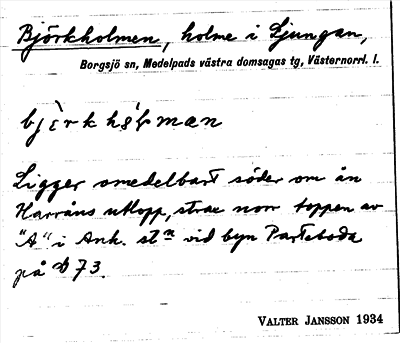 Björkholmen, holme i Ljungan,
Borgsjö sn, Medelpads västra domsagas tg, Västernorrl. l.
Ligger omedelbart söder om ån
Harråns utlopp, strax norr toppen av
"A" i Ank. stn vid byn Parteboda
på 73.
VALTER JANSSON 1934